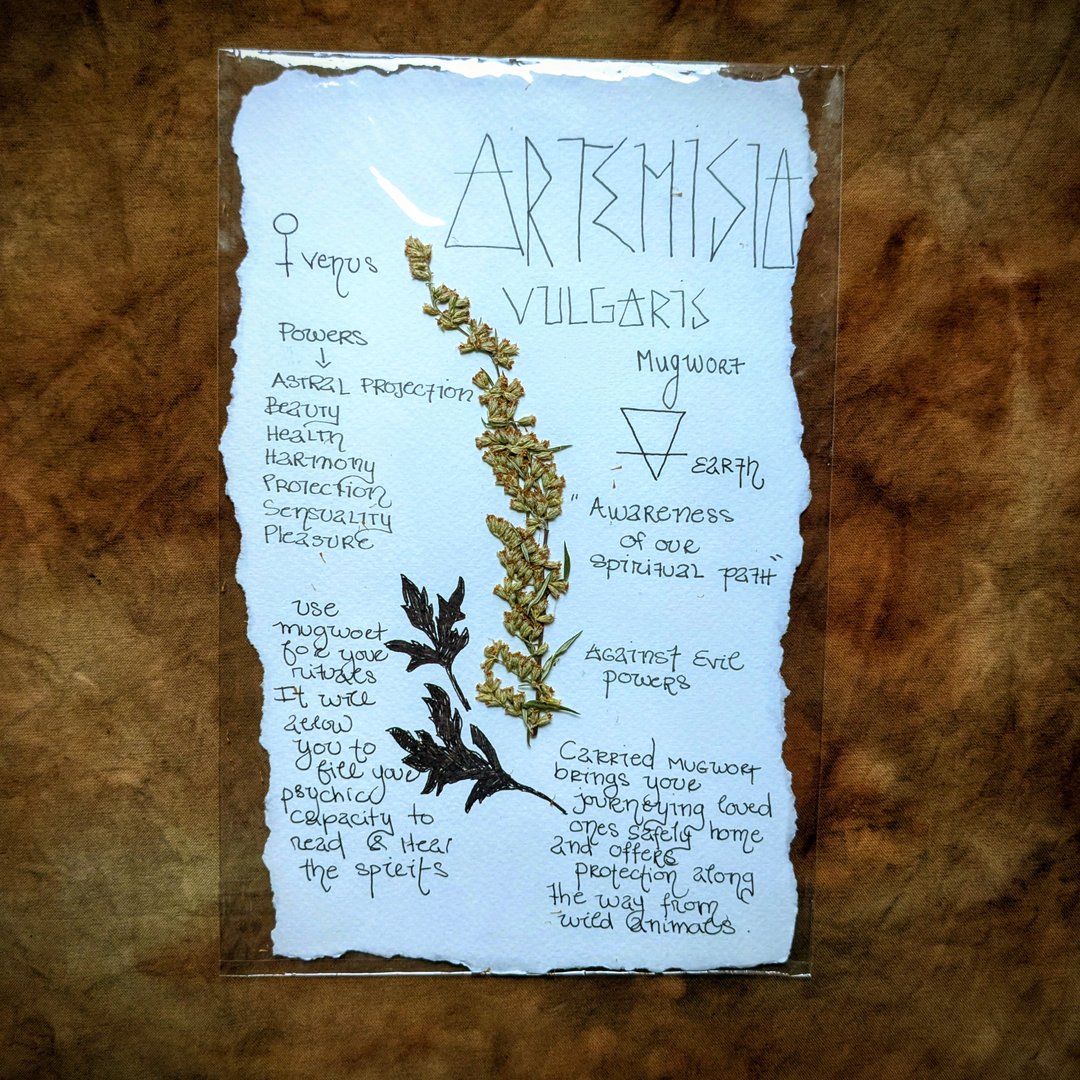 ARTEMISIA
VULGARIS
Mugwort
Earth
"Awareness
of our
spiritual path"
Against Evil
powers
Carried mugwort
brings your
journeying loved
ones safely home
and offers
protection along
the way from
wild animals.
Venus
Powers
↓
Astral Projection
Beauty
Health
Harmony
Protection
Sensuality
Pleasure
use
mugwort
for your
rituals
It will
allow
you to
fill your
psychic
capacity to
read & Hear
the spirits